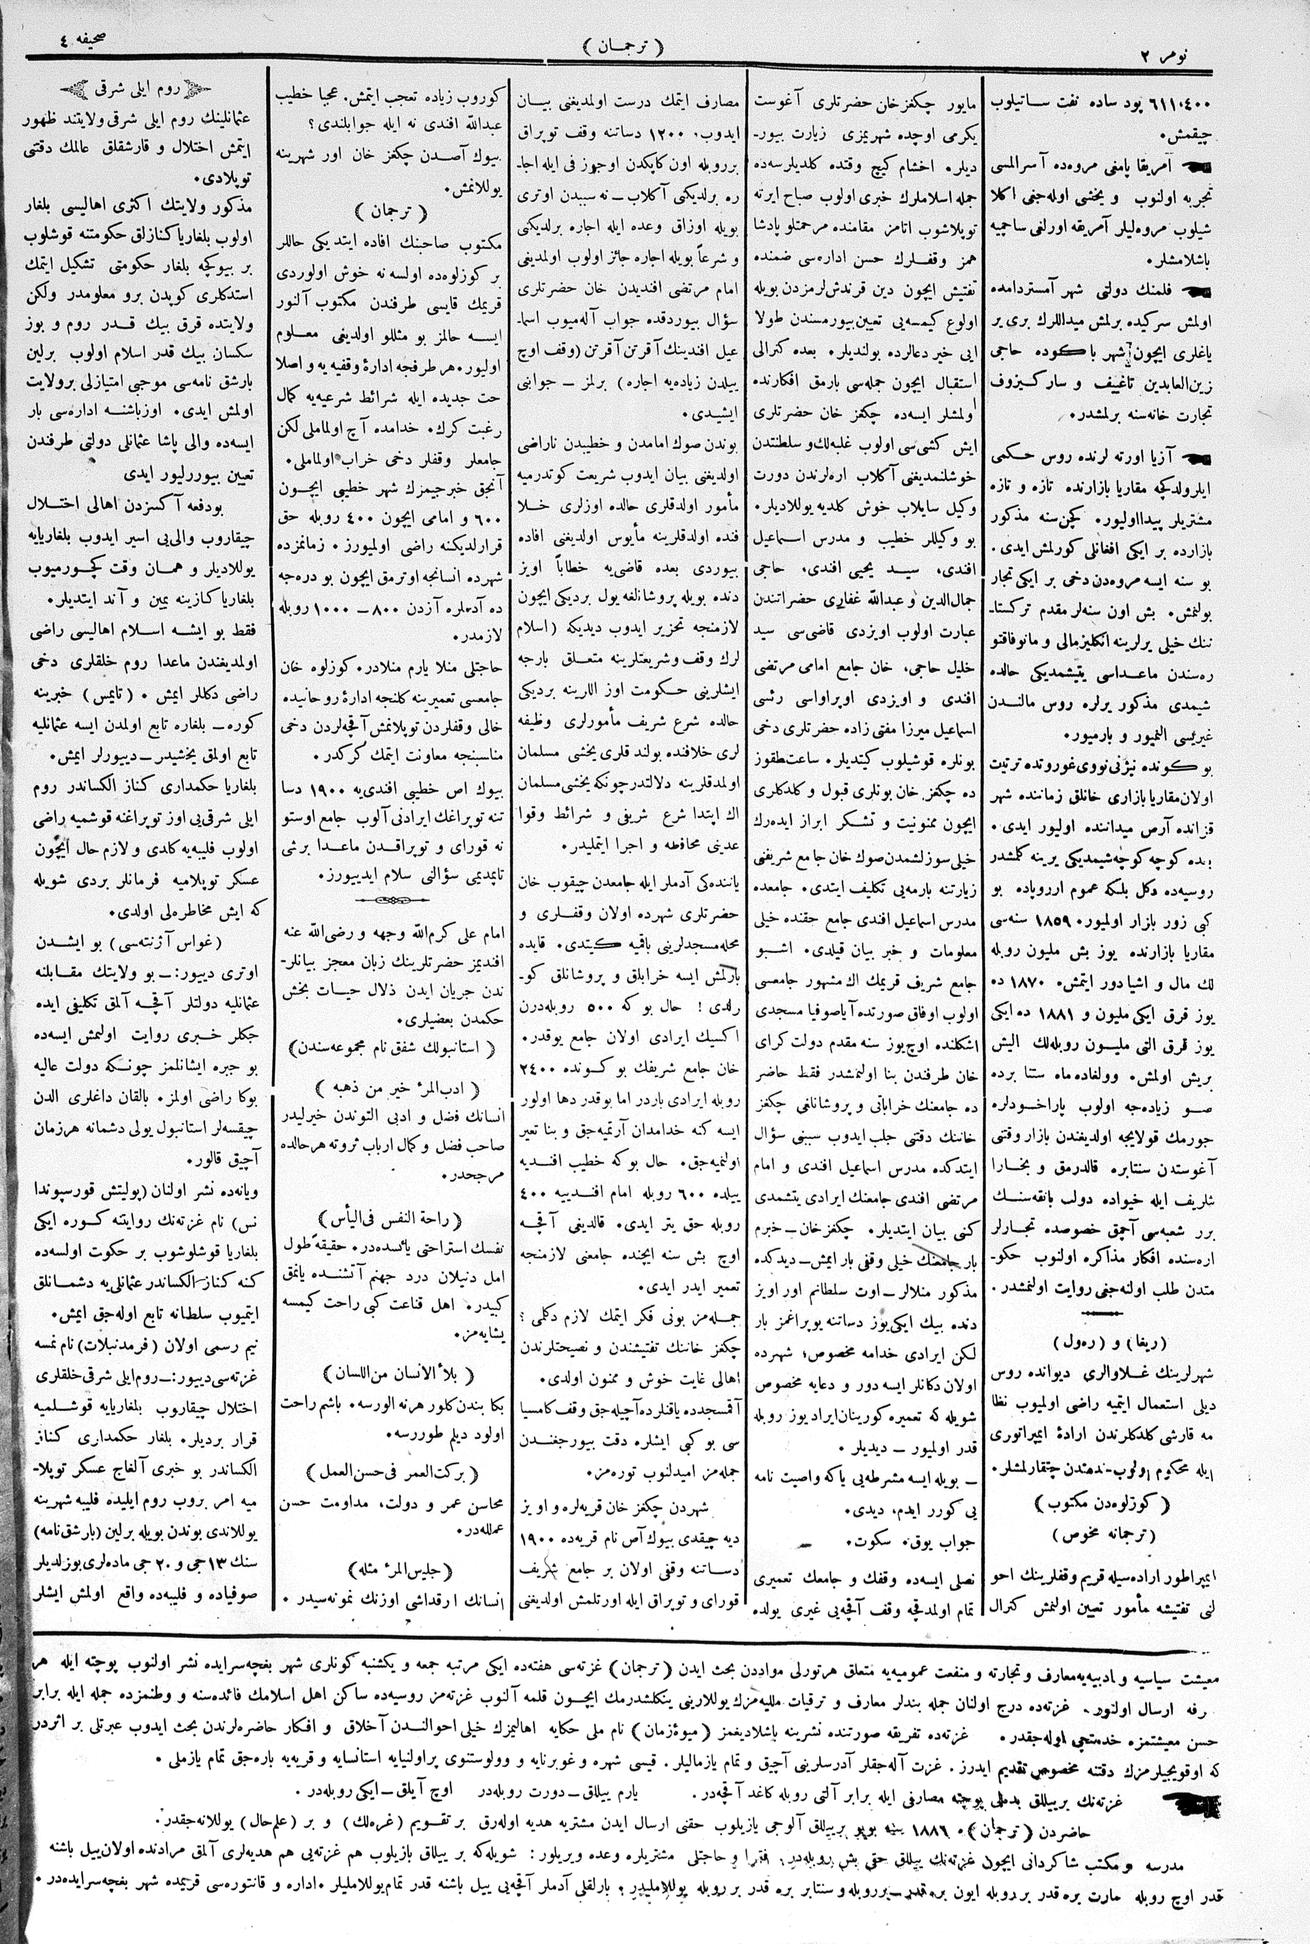 نومر ٢
( ترجمان )
صحیفه ٤
٦١١،٤٠٠ پود ساده نفت ساتیلوب
چیقمش.
آمریقا پامغی مروه‌ده آسرالمسی
تجربه اولنوب و یخشی اوله‌جغی اکلا
شیلوب مروه‌لیلر آمریقه اورلغی ساچمیه
باشلامشلر.
فلمنك دولتی شهر آمستردامده
اولمش سرکیده برلمش میداللرك بری یر
یاغلری ایچون شهر باکوده حاجی
زین‌العابدین تاغییف و سارکیزوف
تجارت خانه‌سنه برلمشدر.
آزیا اورته لرنده روس حکمی
ایلرولدکجه مقاریا بازارنده تازه و تازه
مشتریلر پیدا اولیور. کچن سنه مذکور
بازارده بر ایکی افغانلی کورلمش ایدی.
بو سنه ایسه مروه‌دن دخی بر ایکی تجار
بولنمش. بش اون سنه‌لر مقدم ترکستا-
ننك خیلی یرلرینه انکلیز مالی و مانوفاقتو
ره‌سندن ماعداسی یتیشمدیکی حالده
شیمدی مذکور یرلره روس مالندن
غیریسی النمیور و بارمیور.
بو کونده نیژنی نووی غورونده ترتیت
اولان مقاریا بازاری خانلق زماننده شهر
قزانده آرص میداننده اولیور ایدی.
بده کوچه کوچه شیمدیکی یرینه کلمشدر
روسیه‌ده دکل بلکه عموم اوروپاده بو
کبی زور بازار اولمیور. ١٨٥٩ سنه‌سی
مقاریا بازارنده یوز بش ملیون روبله
لك مال و اشیا دور ایتمش. ١٨٧٠ ده
یوز قرق ایکی ملیون و ١٨٨١ ده ایکی
یوز قرق التی ملیون روبله‌لك الیش
بریش اولمش. وولغاده ماه ستتا برده
صو زیاده‌جه اولوب باراخودلره
جورمك قولایجه اولدیغندن بازار وقتی
آغوستدن سنتابره قالدرمق و بخارا
شاریف ایله خیواده دولت بانقه‌سنك
برر شعبه‌سی آچمق خصوصده تجارلر
اره‌سنده افکار مذاکره اولنوب حکو-
متدن طلب اولنه‌جغی روایت اولنمشدر.
( ریغا ) و ( ره‌ول )
شهرلرینك غلاوالری دیوانده روس
دیلی استعمال ایتمیه راضی اولمیوب نظا
مه قارشی کلدکلرندن ارادهٔ ایمپراتوری
ایله محکوم اولوب خدمتدن چقارلمشلر.
( کوزلوه‌دن مکتوب )
( ترجمانه مخوص )
ایمپراطور اراده‌سیله قریم وقفلرینك احو
لنی تفتیشه مأمور تعیین اولنمش کنرال
مایور چکفز خان حضرتلری آغوست
یکرمی اوچده شهریمزی زیارت بیور-
دیلر. اخشام کیچ وقتده کلدیلرسه‌ده
جمله اسلاملرك خبری اولوب صباح ایرته
توپلاشوب اتامز مقامنده مرحمتلو پادشا
همز وقفلرك حسن اداره‌سی ضمنده
تفتیش ایچون دین قرندش لرمزدن بویله
اولوع کیمسه‌یی تعیین بیورمسندن طولا
ایی خیر دعالرده بولندیلر. بعده کنرالی
استقبال ایچون جمله‌سی بارمق افکارنده
اولمشلر ایسه‌ده چکفز خان حضرتلری
ایش کشی‌سی اولوب غلبه‌لك و سلطنتدن
خوشلنمدیغی آکلاب اره‌لرندن دورت
وکیل سایلاب خوش کلدیه یوللادیلر.
بو وکیللر خطیب و مدرس اسماعیل
افندی، سید یحیی افندی، حاجی
جمال‌الدین و عبدالله غفاری حضراتندن
عبارت اولوب اویزدی قاضی‌سی سید
خلیل حاجی، خان جامع امامی مرتضی
افندی و اویزدی اوپراواسی رئسی
اسماعیل میرزا مفتی زاده حضرتلری دخی
بونلره قوشیلوب کیتدیلر. ساعت طقوز
ده چکفز خان بونلری قبول و کلدکلری
ایچون ممنونیت و تشکر ابراز ایده‌رك
خیلی سوزلشمدن صوك خان جامع شریفی
زیارتنه بارمه‌یی تکلیف ایتدی. جامعده
مدرس اسماعیل افندی جامع حقنده خیلی
معلومات و خبر بیان قیلدی. اشبو
جامع شریف قریمك اك مشهور جامعسی
اولوب اوفاق صورتده آیاصوفیا مسجدی
اشکلنده اوچ یوز سنه مقدم دولت کرای
خان طرفندن بنا اولنمشدر فقط حاضر
ده جامعنك خراباتی و پروشانلغی چکفز
خاننك دقتی جلب ایدوب سببنی سؤال
ایتدکده مدرس اسماعیل افندی و امام
مرتضی افندی جامعنك ایرادی یتشمدی
کنی بیان ایتدیلر. چکفز خان — خبرم
بار جامعنك خیلی وقفی بار ایمش — دیدکده
مذکور منلالر — اوت سلطانم اور اویز
دنده بیك ایکی یوز دساتنه یوپراغمز بار
لکن ایرادی خدامه مخصوص؛ شهرده
اولان دکانلر ایسه دور و دعایه مخصوص
شویله که تعمیره کورینان ایراد یوز روبله
قدر اولمیور — دیدیلر.
— بویله ایسه مشرطه‌یی یا که واصیت نامه
یی کورر ایدم، دیدی.
جواب یوق. سکوت.
نصلی ایسه‌ده وقفك و جامعك تعمیری
تمام اولمدقچه وقف آقچه‌یی غیری یولده
مصارف ایتمك درست اولمدیغنی بیان
ایدوب، ١٢٠٠ دساتنه وقف توپراق
بر روبله اون کاپکدن اوجوز فی ایله اجا-
ره برلدیکی آکلاب — نه سببدن اوتری
بویله اوزاق وعده ایله اجاره برلدیکی
و شرعاً بویله اجاره جائز اولوب اولمدیغی
امام مرتضی افندیدن خان حضرتلری
سؤال بیوردقده جواب آله‌میوب اسما-
عیل افندینك آقرتن آقرتن (وقف اوچ
ییلدن زیاده‌یه اجاره) برلمز — جوابنی
ایشیدی.
بوندن صوك امامدن و خطیبدن ناراضی
اولدیغنی بیان ایدوب شریعت کوتدرمیه
مأمور اولدقلری حالده اوزلری خلا
فنده اولدقلرینه مأیوس اولدیغنی افاده
بیوردی بعده قاضی‌یه خطاباً اویز
دنده بویله پروشانلغه یول بردیکی ایچون
لازمنجه تحزیر ایدوب دیدیکه (اسلام
لرك وقف و شریعتلرینه متعلق بارجه
ایشلرینی حکومت اوز اللرینه بردیکی
حالده شرع شریف مأمورلری وظیفه
لری خلافنده بولند قلری یخشی مسلمان
اولمدقلرینه دلالتدر چونکه یخشی مسلمان
اك ابتدا شرع شریفی و شرائط وقوا
عدینی محافظه و اجرا ایتملیدر.
یاننده‌کی آدملر ایله جامعدن چیقوب خان
حضرتلری شهرده اولان وقفلری و
محله مسجدلرینی باقمیه کیتدی. قایده
بارلمش ایسه خرابلق و پروشانلق کو-
رلدی! حال بو که ٥٠٠ روبله‌درن
اکسیك ایرادی اولان جامع یوقدر.
خان جامع شریفك بو کونده ٢٤٠٠
روبله ایرادی باردر اما بوقدر دها اولور
ایسه کنه خدامدان آرتمیه‌جق و بنا تعیر
اولنمیه‌جق. حال بو که خطیب افندیه
ییلده ٦٠٠ روبله امام افندییه ٤٠٠
روبله حق یتر ایدی. قالدیغی آقچه
اوچ بش سنه ایچنده جامعنی لازمنجه
تعمیر ایدر ایدی.
جمله‌مز بونی فکر ایتمك لازم دکلمی؟
چکفز خاننك تفتیشندن و نصیحتلرندن
اهالی غایت خوش و ممنون اولدی.
آقمسجدده یاقنلرده آچیله‌جق وقف کامسیا
سی بو کبی ایشلره دقت بیورجغندن
جمله‌مز امیدلنوب توره‌مز.
شهردن چکفز خان قریه‌لره و اویز
دیه چیقدی بیوك آص نام قریه‌ده ١٩٠٠
دساتنه وقفی اولان بر جامع شریف
قورای و توپراق ایله اورتلمش اولدیغنی
کوروب زیاده تعجب ایتمش. عجبا خطیب
عبدالله افندی نه ایله جوابلندی؟
بیوك آصدن چکفز خان اور شهرینه
یوللانمش.
( ترجمان )
مکتوب صاحبنك افاده ایتدیکی حاللر
بر کوزلوه‌ده اولسه نه خوش اولوردی
قریمك قایسی طرفندن مکتوب آلنور
ایسه حالمز بو مثللو اولدیغی معلوم
اولیور. هر طرفجه ادارهٔ وقفیه یه و اصلا
حت جدیده ایله شرائط شرعیه‌یه کمال
رغبت کرك. خدامده آچ اولماملی لکن
جامعلر وقفلر دخی خراب اولماملی.
آنجق خبرجیمزك شهر خطیبی ایچون
٦٠٠ و امامی ایچون ٤٠٠ روبله حق
قرارلدیکنه راضی اولمیورز. زمانمزده
شهرده انسانجه اوترمق ایچون بو دره‌جه
ده آدملره آزدن ٨٠٠ — ١٠٠٠ روبله
لازمدر.
حاجتلی منلا یارم منلادر. کوزلوه خان
جامعسی تعمیرینه کلنجه ادارهٔ روحانیده
خالی وقفلردن توپلانمش آقچه‌لردن دخی
مناسبنجه معاونت ایتمك کرکدر.
بیوك اص خطیبی افندی‌یه ١٩٠٠ دسا
تنه توپراغك ایرادنی آلوب جامع اوستو
نه قورای و توپراقدن ماعدا برشی
تاپدیمی سؤالنی سلام ایدییورز.
امام علی کرم‌الله وجهه و رضی‌الله عنه
افندیمز حضرتلرینك زبان معجز بیانلر-
ندن جریان ایدن ذلال حیات بخش
حکمدن بعضیلری.
( استانبولك شفق نام مجموعه‌سندن)
( ادب المرٔ خیر من ذهبه )
انسانك فضل و ادبی التوندن خیرلیدر
صاحب فضل و کمال ارباب ثروته هر حالده
مرجحدر.
(راحة النفس فی الیأس)
نفسك استراحتی یائسده‌در. حقیقةً طول
امل دنیلان درد جهنم آتشنده یانمق
کبیدر. اهل قناعت کبی راحت کیمسه
یشایه‌مز.
( بلأ الانسان من اللسان )
بکا بندن کلور هرنه الورسه. باشم راحت
اولود دیلم طوررسه.
(برکت العمر فی حسن العمل)
محاسن عمر و دولت، مداومت حسن
عمله‌در.
(جلیس المرٔ مثله)
انسانك ارقداشی اوزنك نمونه‌سیدر.
روم ایلی شرقی
عثمانلینك روم ایلی شرقی ولایتند ظهور
ایتمش اختلال و قارشقلق عالمك دقتی
توپلادی.
مذکور ولایتك اکثری اهالیسی بلغار
اولوب بلغاریا کنازلق حکومتنه قوشلوب
بر بیوکچه بلغار حکومتی تشکیل ایتمك
استدکلری کوپدن برو معلومدر ولکن
ولایتده قرق بیك قدر روم و یوز
سکسان بیك قدر اسلام اولوب برلین
بارشق نامه‌سی موجبی امتیازلی بر ولایت
اولمش ایدی. اوز باشنه اداره‌سی بار
ایسه‌ده والی پاشا عثمانلی دولتی طرفندن
تعیین بیوررلیور ایدی
بودفعه آکسزدن اهالی اختلال
چیقاروب والی‌یی اسیر ایدوب بلغاریایه
یوللادیلر و همان وقت کچورمیوب
بلغاریا کنازینه یمین و آند ایتدیلر.
فقط بو ایشه اسلام اهالیسی راضی
اولمدیغندن ماعدا روم خلقلری دخی
راضی دکللر ایمش. (تایمس) خبرینه
کوره — بلغاره تابع اولمدن ایسه عثمانلیه
تابع اولمق یخشیدر — دییورلر ایمش.
بلغاریا حکمداری کناز الکساندر روم
ایلی شرقی‌یی اوز توپراغنه قوشمیه راضی
اولوب فلیبه‌یه کلدی و لازم حال ایچون
عسکر توپلامیه فرمانلر بردی شویله
که ایش مخاطره‌لی اولدی.
(غواس آژنته‌سی) بو ایشدن
اوتری دییور: — بو ولایتك مقابلنه
عثمانلیه دولتلر آقچه آلمق تکلیفی ایده
جکلر خبری روایت اولنمش ایسه‌ده
بو جبره ایشانلمز چونکه دولت عالیه
بوکا راضی اولمز. بالقان داغلری الدن
چیقسه‌لر استانبول یولی دشمانه هر زمان
آچیق قالور.
ویانه‌ده نشر اولنان (پولیتش قورسپوندا
نس) نام غزته‌نك روایتنه کوره ایکی
بلغاریا قوشلوشوب بر حکوت اولسه‌ده
کنه کناز — الکساندر عثمانلی‌یه دشمانلق
ایتمیوب سلطانه تابع اوله‌جق ایمش.
نیم رسمی اولان (فرمدنبلات) نام نمسه
غزته‌سی دییور: — روم ایلی شرقی خلقلری
اختلال چیقاروب بلغاریایه قوشلمیه
قرار بردیلر. بلغار حکمداری کناز
الکساندر بو خبری آلغاج عسکر توپلا-
میه امر بروب روم ایلیده فلیبه شهرینه
یوللاندی بوندن بویله برلین (بارشق نامه)
سنك ١٣ جی و ٢٠ جی ماده‌لری بوزلدیلر
صوفیاده و فلیبه‌ده واقع اولمش ایشلر
معیشت سیاسیه و ادبیه‌یه معارف و تجارته و منفعت عمومیه‌یه متعلق هر تورلی مواددن بحث ایدن (ترجمان) غزته‌سی هفته‌ده ایکی مرتبه جمعه و یکشنبه کونلری شهر بغچه‌سرایده نشر اولنوب پوچته ایله هر
رفه ارسال اولنور. غزته‌ده درج اولنان جمله بندلر معارف و ترقیات ملیه‌مزك یوللارینی ینکلشدرمك ایچون قلمه آلنوب غزته‌مز روسیه‌ده ساکن اهل اسلامك فائده‌سنه و وطنمزده جمله ایله برابر
حسن معیشتمزه خدمتجی اوله‌جقدر. غزته‌ده تفریقه صورتنده نشرینه باشلادیغمز (میوۀزمان) نام ملی حکایه اهالیمزك خیلی احوالندن آخلاق و افکار حاضره‌لرندن بحث ایدوب عبرتلی بر اثردر
که اوقویجیلرمزك دقتنه مخصوص تقدیم ایدرز. غزت آله‌جقلر آدرسلرینی آچیق و تمام یازمالیلر. قیسی شهره و غوبرنایه و وولوستنوی پراولنیایه استانسایه و قریه‌یه باره‌جق تمام یازملی.
غزته‌نك بر ییللق بدلی پوچته مصارفی ایله برابر آلتی روبله کاغد آقچه‌در. یارم ییللق — دورت روبله‌در اوچ آیلق — ایکی روبله‌در.
حاضردن (ترجمان)ه ١٨٨٦ سنه بویو بر ییللق آلوجی یازیلوب حقنی ارسال ایدن مشتریه هدیه اوله‌رق بر تقویم (غره‌لك) و بر (علم‌حال) یوللانه‌جقدر.
مدرسه و مکتب شاکردانی ایچون غزته‌نك ییللق حقی بش روبله‌در. فقرا و حاجتلی مشتریلره وعده ویریلور: شویله‌که بر ییللق یازیلوب هم غزته‌یی هم هدیه‌لری آلمق مرادنده اولان ییل باشنه
قدر اوچ روبله مارت بره قدر بر روبله ایون بره قدر — بر روبله و سنتابر بره قدر بر روبله یوللامليدر. بارلقلی آدملر آقچه‌یی ییل باشنه قدر تمام یوللاملیلر. اداره و قانتوره‌سی قریمده شهر بغچه‌سرایده‌در.